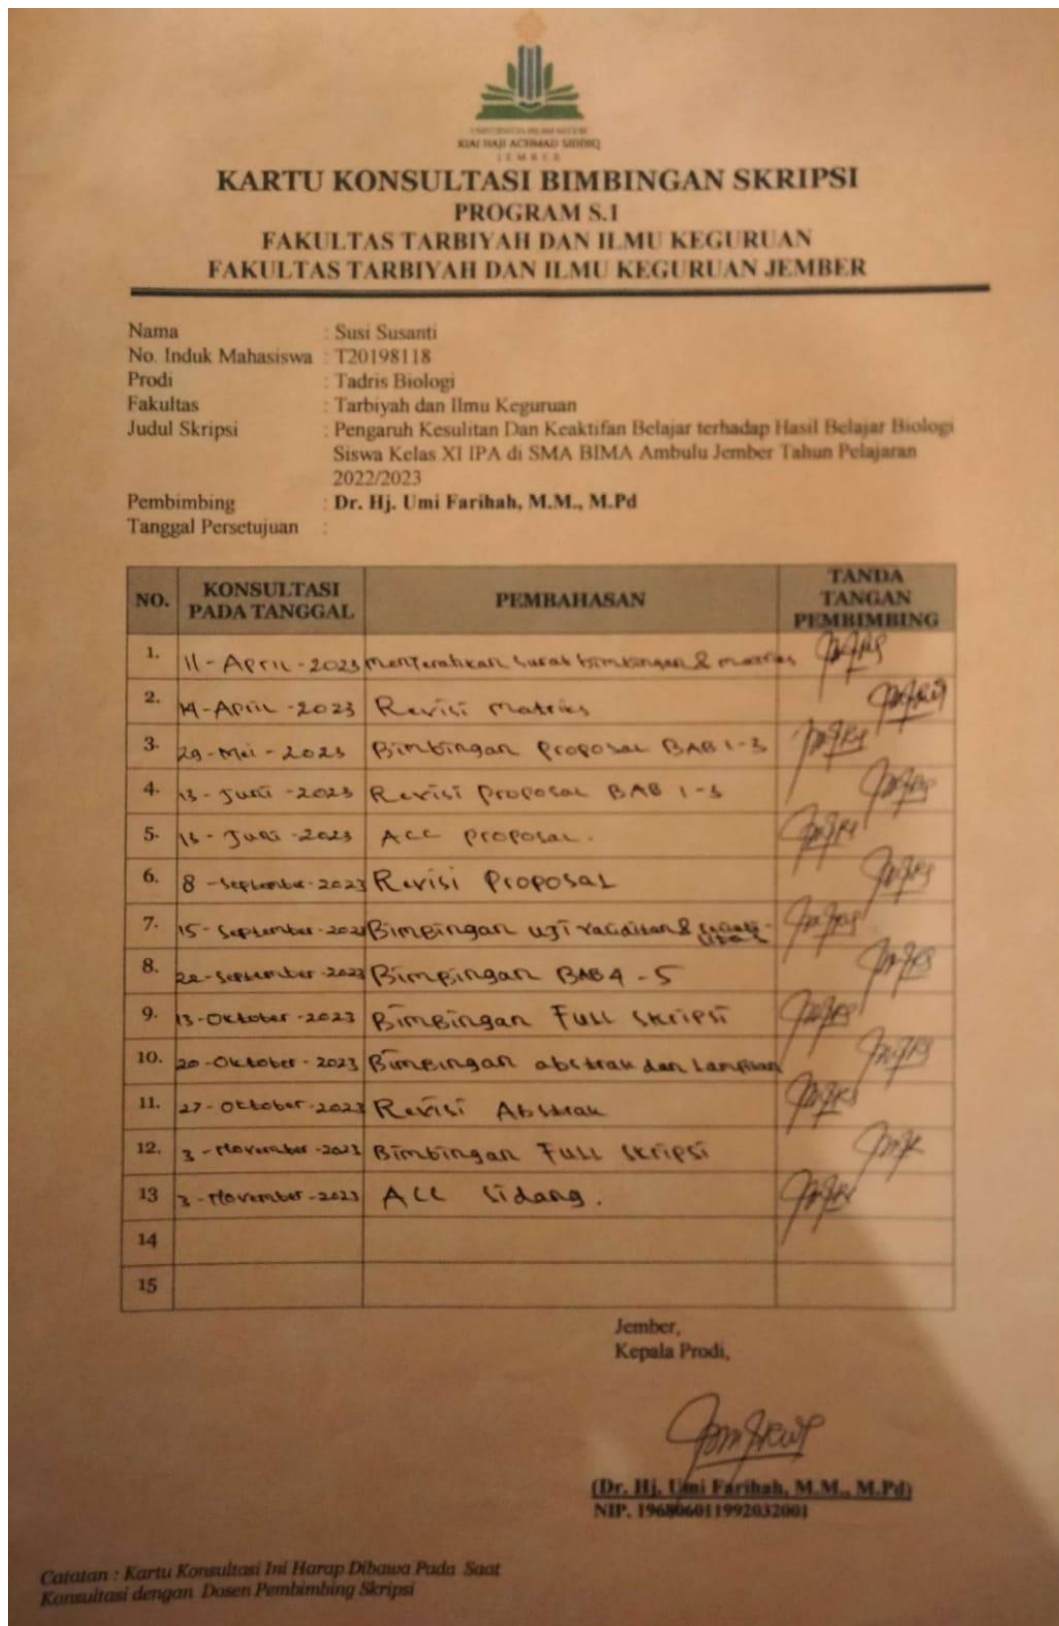 UNIVERSITAS ISLAM NEGERI
KIAI HAJI ACHMAD SIDDIQ
JEMBER
KARTU KONSULTASI BIMBINGAN SKRIPSI
PROGRAM S.1
FAKULTAS TARBIYAH DAN ILMU KEGURUAN
FAKULTAS TARBIYAH DAN ILMU KEGURUAN JEMBER
Nama : Susi Susanti
No. Induk Mahasiswa : T20198118
Prodi : Tadris Biologi
Fakultas : Tarbiyah dan Ilmu Keguruan
Judul Skripsi : Pengaruh Kesulitan Dan Keaktifan Belajar terhadap Hasil Belajar Biologi
Siswa Kelas XI IPA di SMA BIMA Ambulu Jember Tahun Pelajaran
2022/2023
Pembimbing : Dr. Hj. Umi Farihah, M.M., M.Pd
Tanggal Persetujuan :
NO. KONSULTASI PADA TANGGAL PEMBAHASAN TANDA TANGAN PEMBIMBING
1. 11 - April - 2023 Menyerahkan surat bimbingan & matriks
2. 14 - April - 2023 Revisi Matriks
3. 29 - Mei - 2023 Bimbingan Proposal BAB 1 - 3
4. 13 - Juni - 2023 Revisi Proposal BAB 1 - 3
5. Juni - 2023 ACC Proposal.
6. 8 - September - 2023 Revisi Proposal
7. 15 - September - 2023 Bimbingan uji validitas &
8. 22 - September - 2023 Bimbingan BAB 4 - 5
9. 13 - Oktober - 2023 Bimbingan Full Skripsi
10. 20 - Oktober - 2023 Bimbingan abstrak dan Lampiran
11. 27 - Oktober - 2023 Revisi Abstrak
12. 3 - November - 2023 Bimbingan Full Skripsi
13 3 - November - 2023 ACC Sidang.
14
15
Jember,
Kepala Prodi,
(Dr. Hj. Umi Farihah, M.M., M.Pd)
NIP. 196806011992032001
Catatan : Kartu Konsultasi Ini Harap Dibawa Pada Saat
Konsultasi dengan Dosen Pembimbing Skripsi